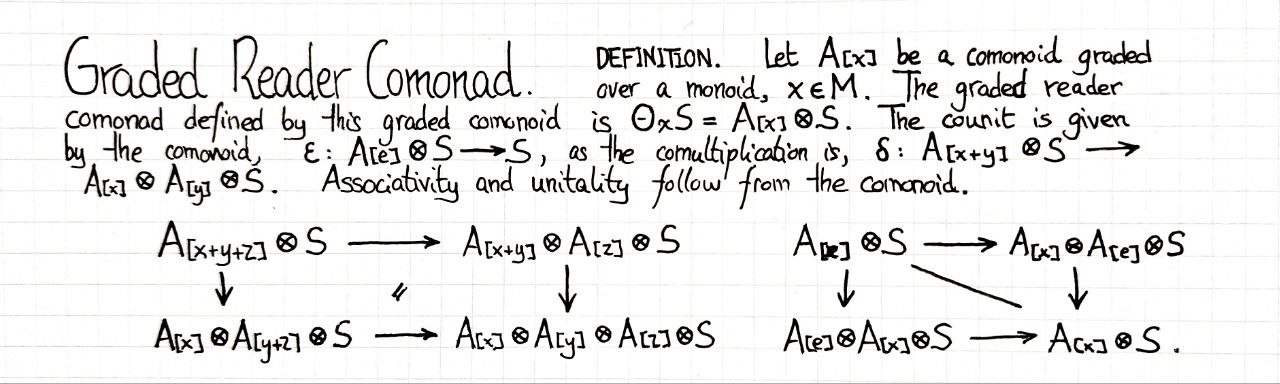 Graded Reader Comonad. DEFINITION. Let A[x] be a comonoid graded
over a monoid, x∈M. The graded reader
comonad defined by this graded comonoid is ΘxS = A[x] ⊗ S. The counit is given
by the comonoid, ε: A[e] ⊗ S → S, as the comultiplication is, δ: A[x+y] ⊗ S →
A[x] ⊗ A[y] ⊗ S. Associativity and unitality follow from the comonoid.
A[x+y+z] ⊗ S → A[x+y] ⊗ A[z] ⊗ S A[x] ⊗ S → A[x] ⊗ A[e] ⊗ S
↓ ↓ ↓ ↓
A[x] ⊗ A[y+z] ⊗ S → A[x] ⊗ A[y] ⊗ A[z] ⊗ S A[e] ⊗ A[x] ⊗ S → A[x] ⊗ S.